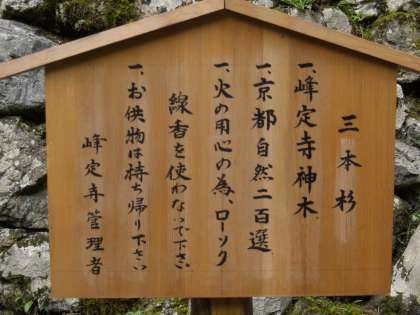 三本杉
一、峰定寺神木
一、京都自然二百選
一、火の用心の為、ローソク
線香を使わないで下さい
一、お供物は持ち帰り下さい
峰定寺管理者